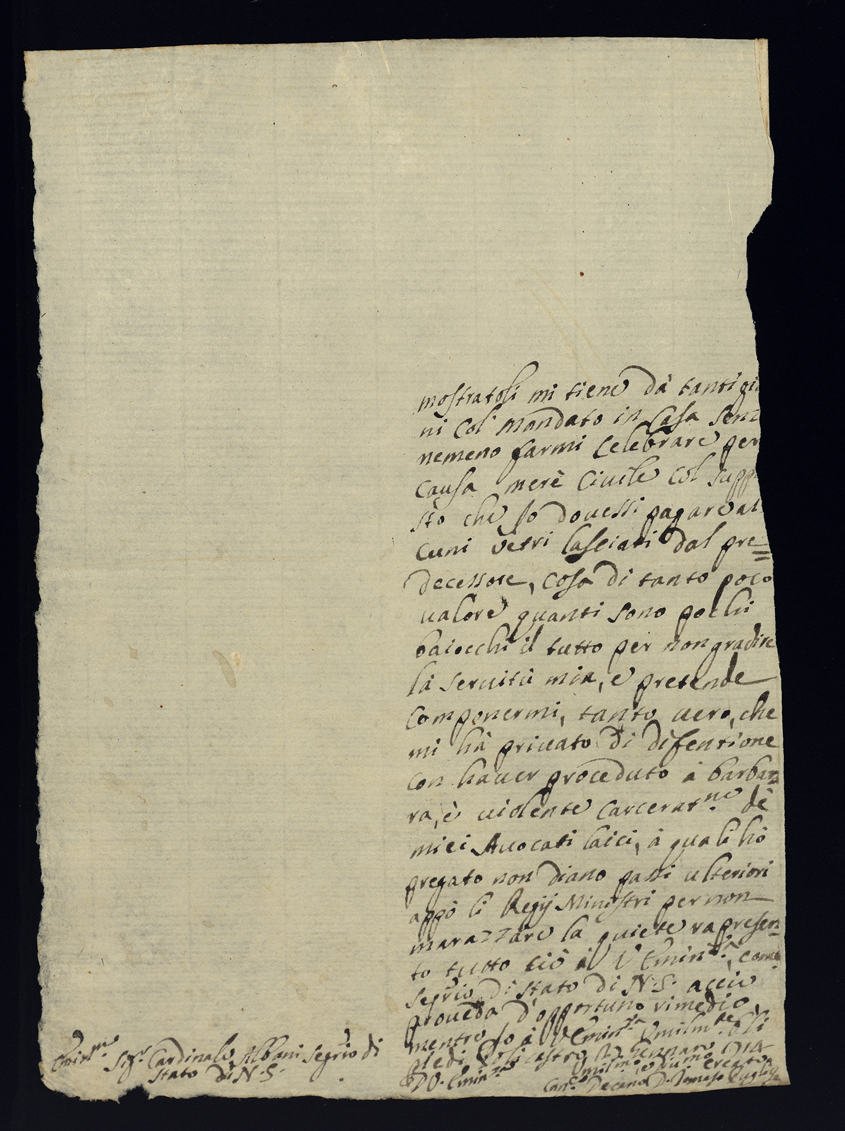 mostratoli mi tiene dà tanti gi
ni col mandato in Casa senz
nemeno farmi Celebrare per
Causa merè Civile col supp
sto che Jo dovessi pagare al
cuni vetri lasciati dal pre=
decessore, cosa di tanto poco
valore quanti sono pochi
baiocchi il tutto per non gradire
la servitù mia, e pretende
componermi, tanto vero, che
mi hà privato di difentione
con haver proceduto à barba
ra, è violente Carcerat.ne de
miei Avocati laici, à quali hò
pregato non diano passi ulteriori
appò li Regij Ministri per non
marazzare la quiete rapresen=
to tutto ciò à V Emin.za, come
Segrio di Stato di N.S. acciò
proveda d'opportuno rimedio
mentre Jo à V Emin.za
piedi Policastro Gennaro
D V. Emin.za
Can.co Decano D. Tomaso
Sig.r Cardinale Albani Segrio di
Stato di N.S.